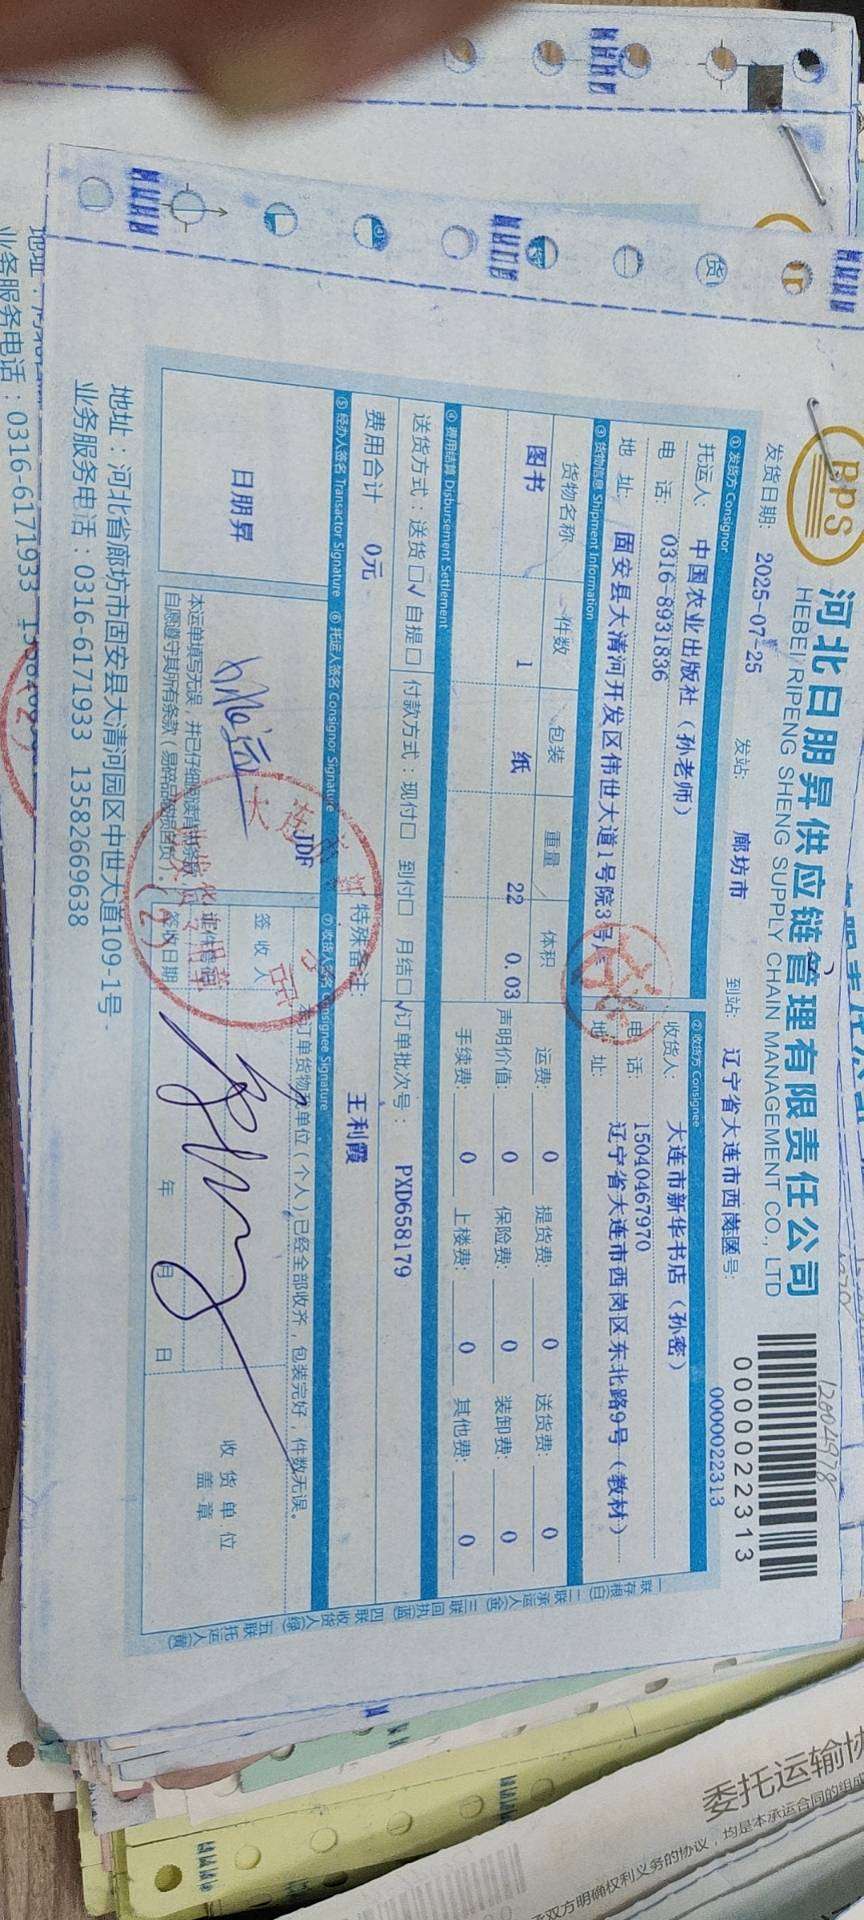 河北日朋昇供应链管理有限责任公司
HEBEI RIPENG SHENG SUPPLY CHAIN MANAGEMENT CO., LTD
12804978
0000022313
0000022313
发货日期: 2025-07-25 发站: 廊坊市 到站: 辽宁省大连市西岗区 号:
① 发货方 Consignor ② 收货方 Consignee
托运人: 中国农业出版社（孙老师） 收货人: 大连市新华书店（孙密）
电 话: 0316-8931836 电 话: 15040467970
地 址: 固安县大清河开发区伟世大道1号院3号 地 址: 辽宁省大连市西岗区东北路9号（教材）
③ 货物信息 Shipment Information
货物名称 件数 包装 重量 体积 运费: 0 提货费: 0 送货费: 0
图书 1 纸 22 0.03 声明价值: 0 保险费: 0 装卸费: 0
手续费: 0 上楼费: 0 其他费: 0
④ 费用结算 Disbursement Settlement
送货方式：送货☐√ 自提☐ 付款方式：现付☐ 到付☐ 月结☐√ 订单批次号： PXD658179
费用合计 0元 特殊备注: 王利霞
⑤ 经办人签名 Transactor Signature ⑥ 托运人签名 Consignor Signature ⑦ 收货人签名 Consignee Signature
日朋昇
JDF
订单货物我单位（个人）已经全部收齐，包装完好，件数无误。
签收人
签收日期 年 月 日
收货单位
盖章
本运单填写无误，并已仔细阅读背书条款，
自愿遵守其所有条款（易碎品破损免责）。
地址：河北省廊坊市固安县大清河园区中世大道109-1号
业务服务电话：0316-6171933 13582669638
一联存根(白) 二联承运人(金) 三联回执(蓝) 四联收货人(绿) 五联托运人(黄)
业务服务电话：0316-6171933
委托运输协